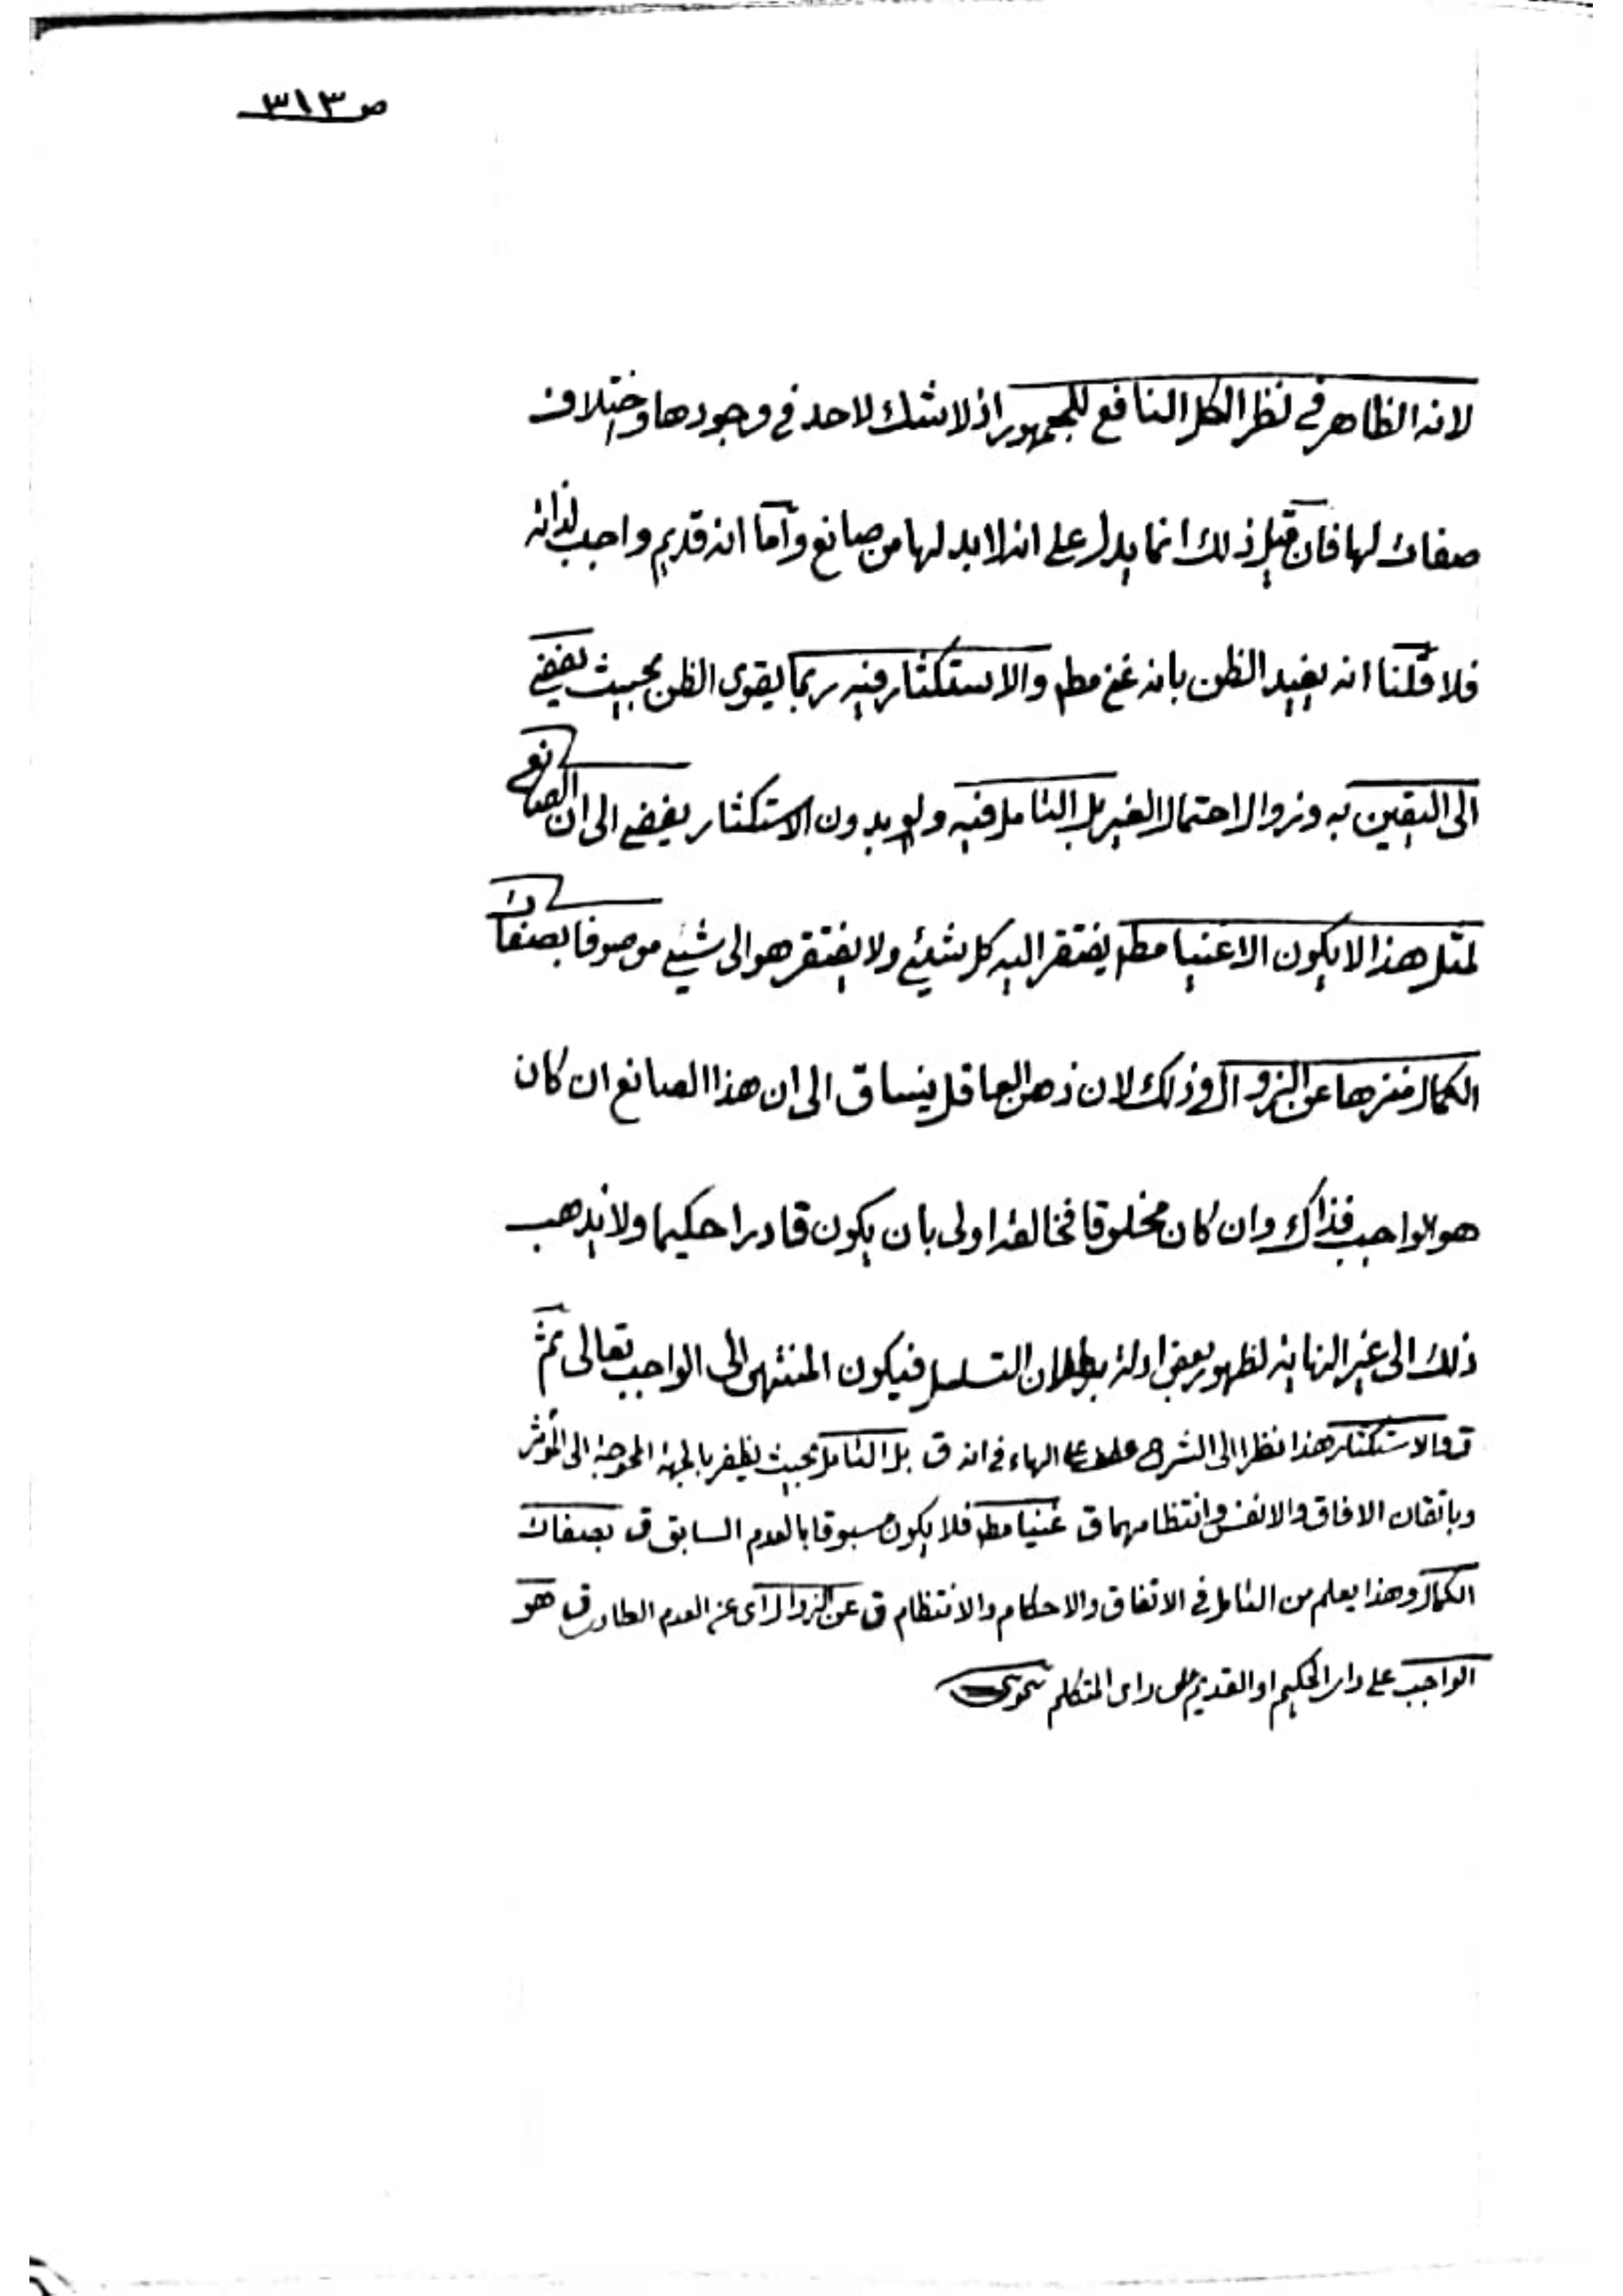 ص ٣١٣
لانه الظاهر في نظر الكل النافع للجمهور اذ لا شك لاحد في وجودها واختلاف
صفات لها فان قيل ذلك انما يدل على انه لا بد لها من صانع واما انه قديم واجب لذاته
فلا قلنا انه يفيد الظن بانه غني مطم والاستكثار فيه ربما يقوى الظن بحيث يفضي
الى اليقين به وزوال احتمال الغير بل التامل فيه ولو بدون الاستكثار يفضي الى ان الصانع
لمثل هذا لا يكون الا غنيا مطم يفتقر اليه كل شيئ ولا يفتقر هو الى شيئ موصوفا بصفات
الكمال منزها عن الزوال وذلك لان ذهن العاقل ينساق الى ان هذا الصانع ان كان
هو الواجب فذاك وان كان مخلوقا فخالقه اولى بان يكون قادرا حكيما ولا يذهب
ذلك الى غير النهاية لظهور بعض ادلة بطلان التسلسل فيكون المنتهى الى الواجب تعالى ثم
ق والاستكثار هذا نظرا الى الشرح عطف على الهاء في انه ق بل التامل بحيث يظفر بالجهة المحوجة الى المؤثر
وباتقان الافاق والانفس وانتظامهما ق غنيا مطم فلا يكون مسبوقا بالعدم السابق ق بصفات
الكمال وهذا يعلم من التامل في الاتقاق والاحكام والانتظام ق عن الزوال اى عن العدم الطارى ق هو
الواجب على راى الحكيم او القديم على راى المتكلم